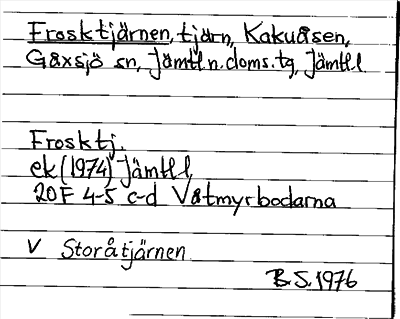 Frosktjärnen, tjärn, Kakuåsen,
Gåxsjö sn, Jämtl n. doms. tg, Jämtl l
Frosktj.
ek (1974) Jämtl l
20F 4-5 c-d Våtmyrbodarna
V Storåtjärnen
B.S. 1976